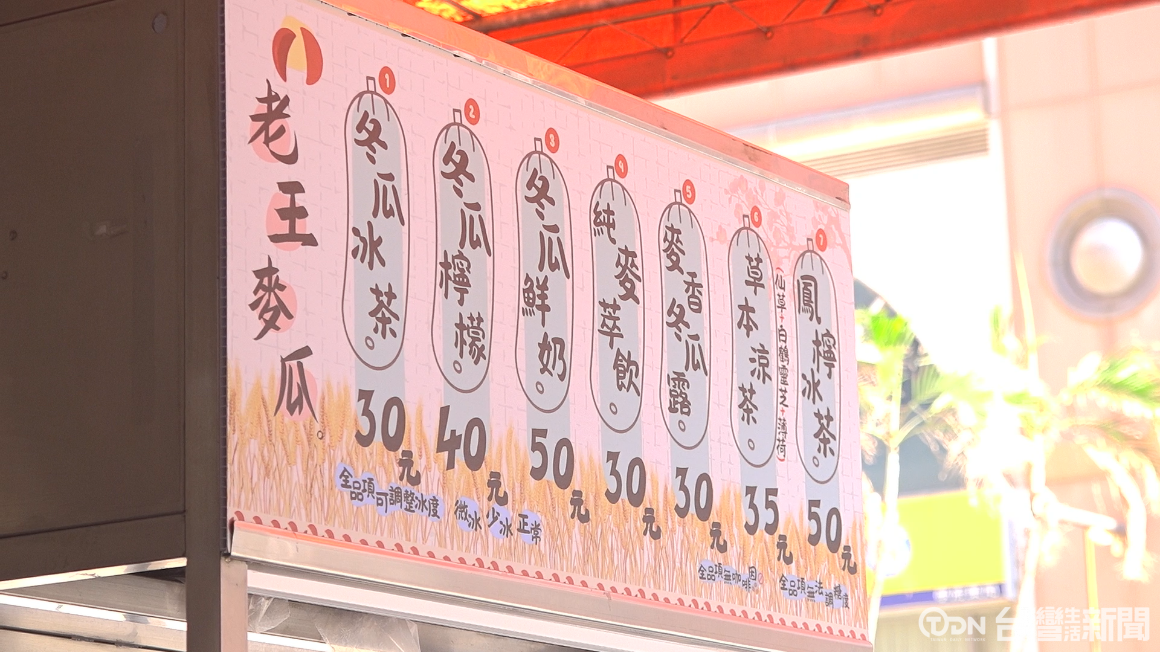 老王麥瓜
1
冬瓜冰茶
30元
2
冬瓜檸檬
40元
3
冬瓜鮮奶
50元
4
純麥萃飲
30元
5
麥香冬瓜露
30元
6
草本涼茶
(仙草+白鶴靈芝+薄荷)
35元
7
鳳檸冰茶
50元
全品項可調整冰度 微冰 少冰 正常
全品項無咖啡因 全品項無法調糖度
TDN 台灣生活新聞